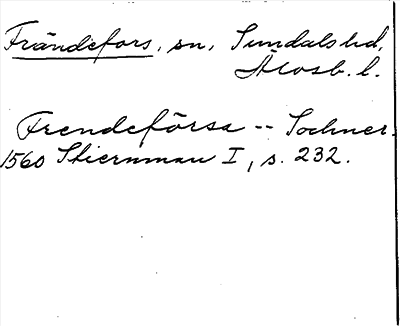 Frändefors, sn, Sundals hd,
Älvsb. l.
Frendeförsa -- Sochner.
1560 Stiernman I, s. 232.